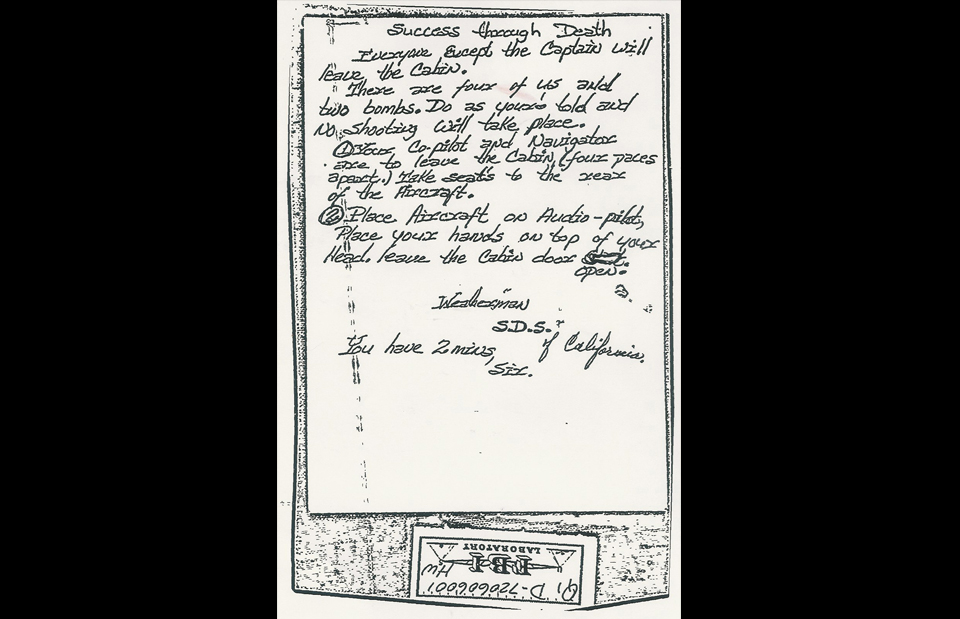 Success through Death
Everyone Except the Captain will
leave the Cabin.
There are four of us and
two bombs. Do as you're told and
No shooting will take place.
① Your Co-pilot and Navigator
are to leave the Cabin, (four paces
apart.) Take seats to the rear
of the Aircraft.
② Place Aircraft on Audio-pilot,
Place your hands on top of your
Head. leave the Cabin door
open.
3.
Weatherman
S.D.S.
of California.
You have 2 mins,
Sir.
LABORATORY
FBI
Q1 D-720606001